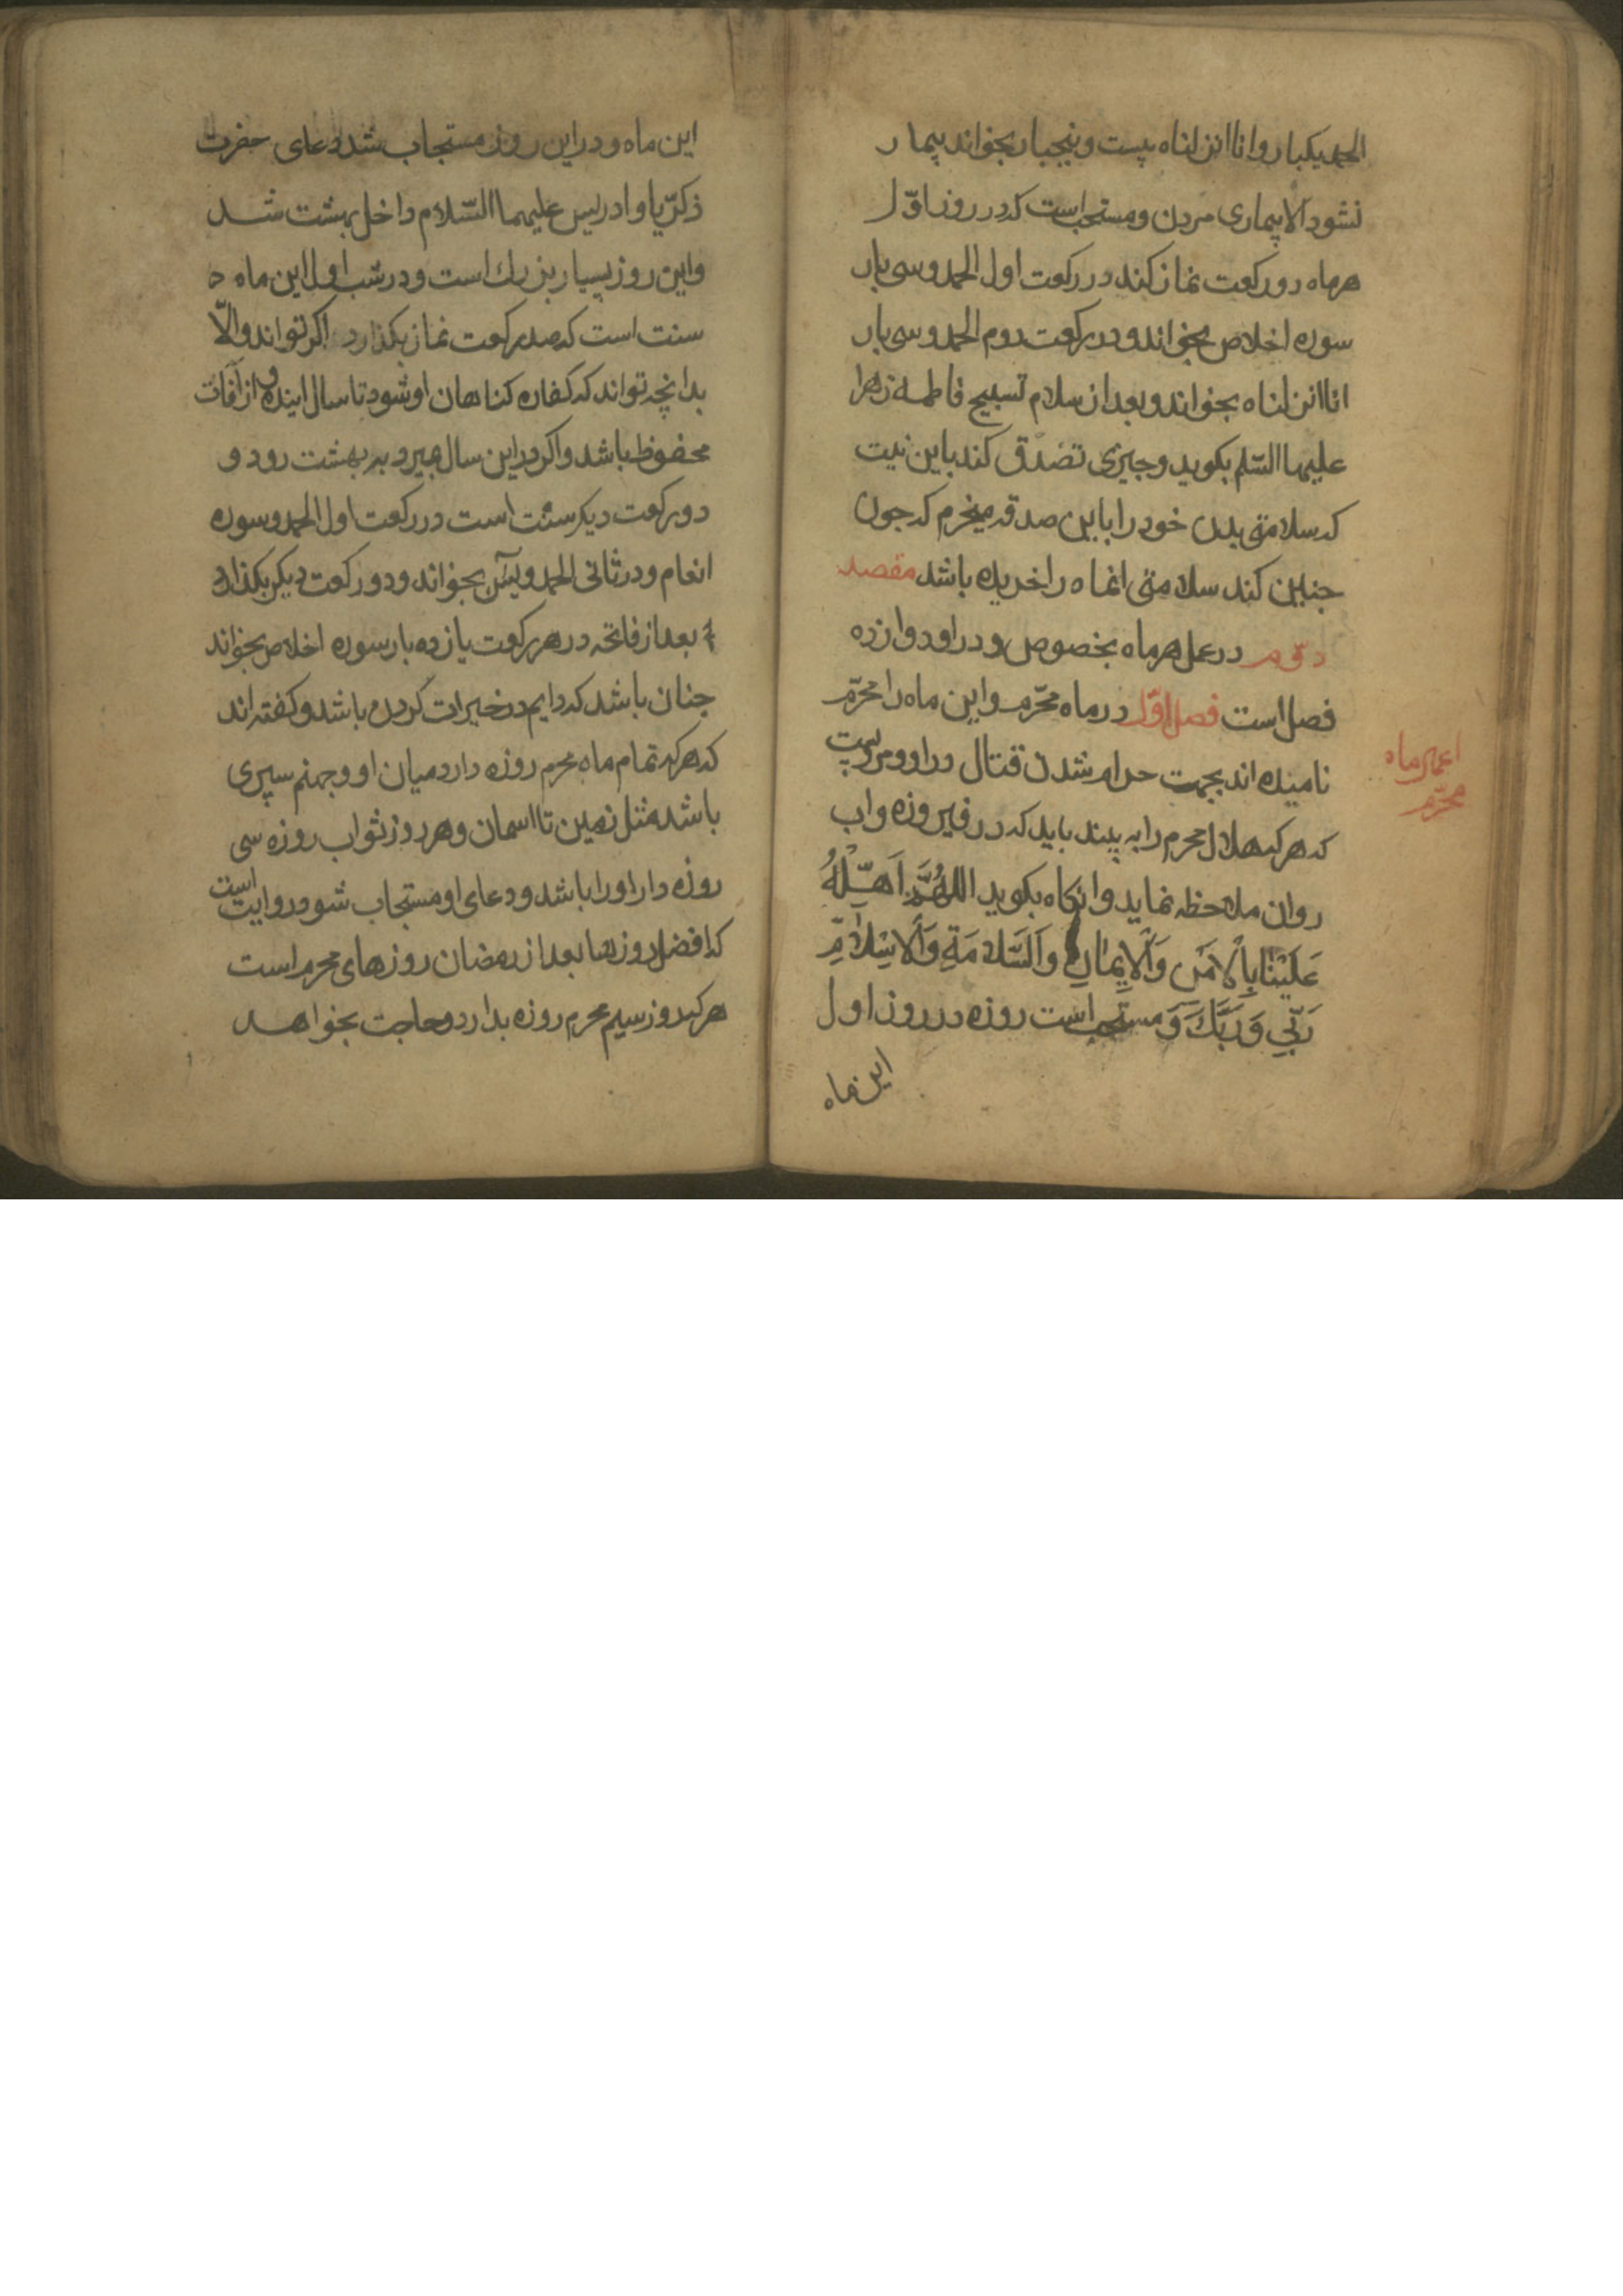 الحمد یکبار و انا انزلناه بیست و پنجبار بخواند بیمار
نشود الا بیماری مردن و مستحب است که در روز اوّل
هر ماه دو رکعت نماز کند در رکعت اول الحمد و سی بار
سوره اخلاص بخواند و در رکعت دوم الحمد و سی بار
انا انزلناه بخواند و بعد از سلام تسبیح فاطمه زهرا
علیها السّلم بکوید و چیزی تصدّق کند باین نیت
که سلامتی بدن خود را باین صدقه میخرم که چون
چنین کند سلامتی انماه را خریده باشد مقصد
دوّم در عمل هر ماه بخصوص و در او دوازده
فصل است فصل اوّل در ماه محرّم و این ماه را محرّم
نامیده اند بجهت حرام شدن قتال در او و مرویست
که هر که هلال محرم را به بیند باید که در فیروزه و اب
روان ملاحظه نماید وانکاه بکوید اللهُمَّ اَهِلَّهُ
عَلَیْنَا بِاْلاَمْنِ وَاْلاِیمٰانِ وَالسَّلامَةِ وَاْلاِسْلامِ
رَبّی وَرَبَّكَ وَ مستحب است روزه در روز اول
این ماه
اعمال ماه
محرّم
این ماه و در این روز مستجاب شد دعای حضرت
ذکرّیا و ادریس علیهما السّلام داخل بهشت شد
و این روز بسیار بزرك است و در شب اول این ماه
سنت است که صد رکعت نماز بکذارد اکر تواند و الّا
بدانچه تواند که کفاره کناهان او شود تا سال اینده و از آفات
محفوظ باشد و اکر در این سال بمیرد به بهشت رود و
دو رکعت دیکر سنت است در رکعت اول الحمد و سوره
انعام و در ثانی الحمد و یسۤ بخواند و دو رکعت دیکر بکذارد
بعد از فاتحه در هر رکعت یازده بار سوره اخلاص بخواند
چنان باشد که دایم در خیرات کردن باشد و کفته اند
که هر که تمام ماه محرم روزه دارد میان او و جهنم سپری
باشد مثل زمین تا اسمان و هر روز ثواب روزه سی
روزه دار او را باشد و دعای او مستجاب شود روایت است
که افضل روزها بعد از رمضان روزهای محرم است
هر که روز سیم محرم روزه بدارد و حاجت بخواهد